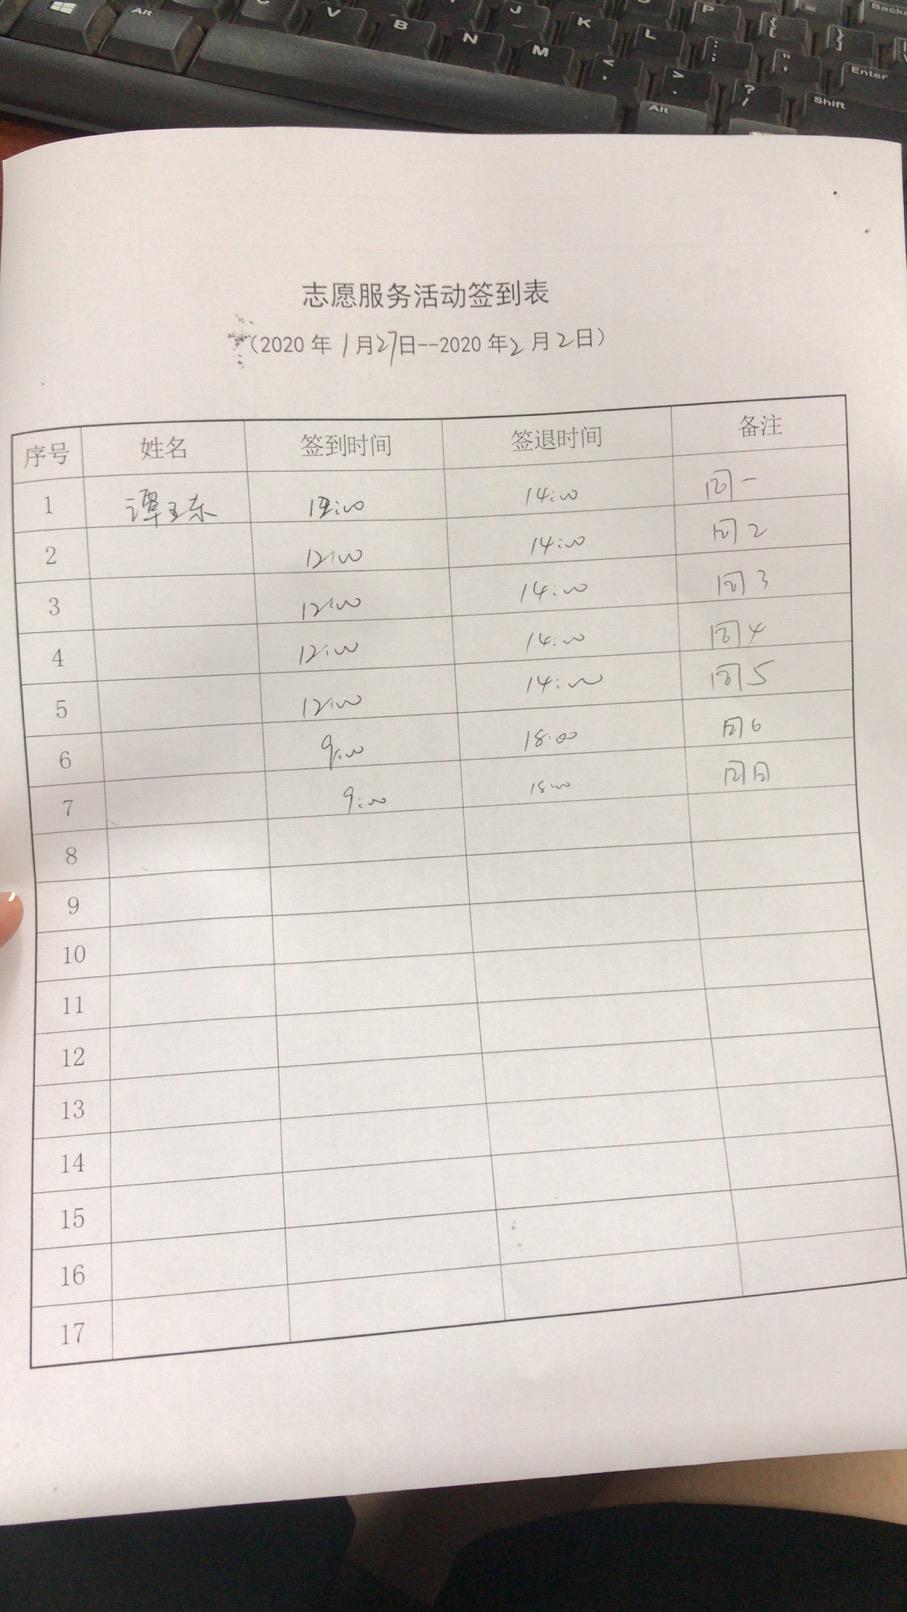 Alt V B N M J K L P Enter
< , > . ? / Alt Shift
志愿服务活动签到表
(2020年1月27日--2020年2月2日)
序号 姓名 签到时间 签退时间 备注
1 谭 东 12:00 14:00 周一
2 12:00 14:00 周2
3 12:00 14:00 周3
4 12:00 14:00 周4
5 12:00 14:00 周5
6 9:00 18:00 周6
7 9:00 18:00 周日
8
9
10
11
12
13
14
15
16
17